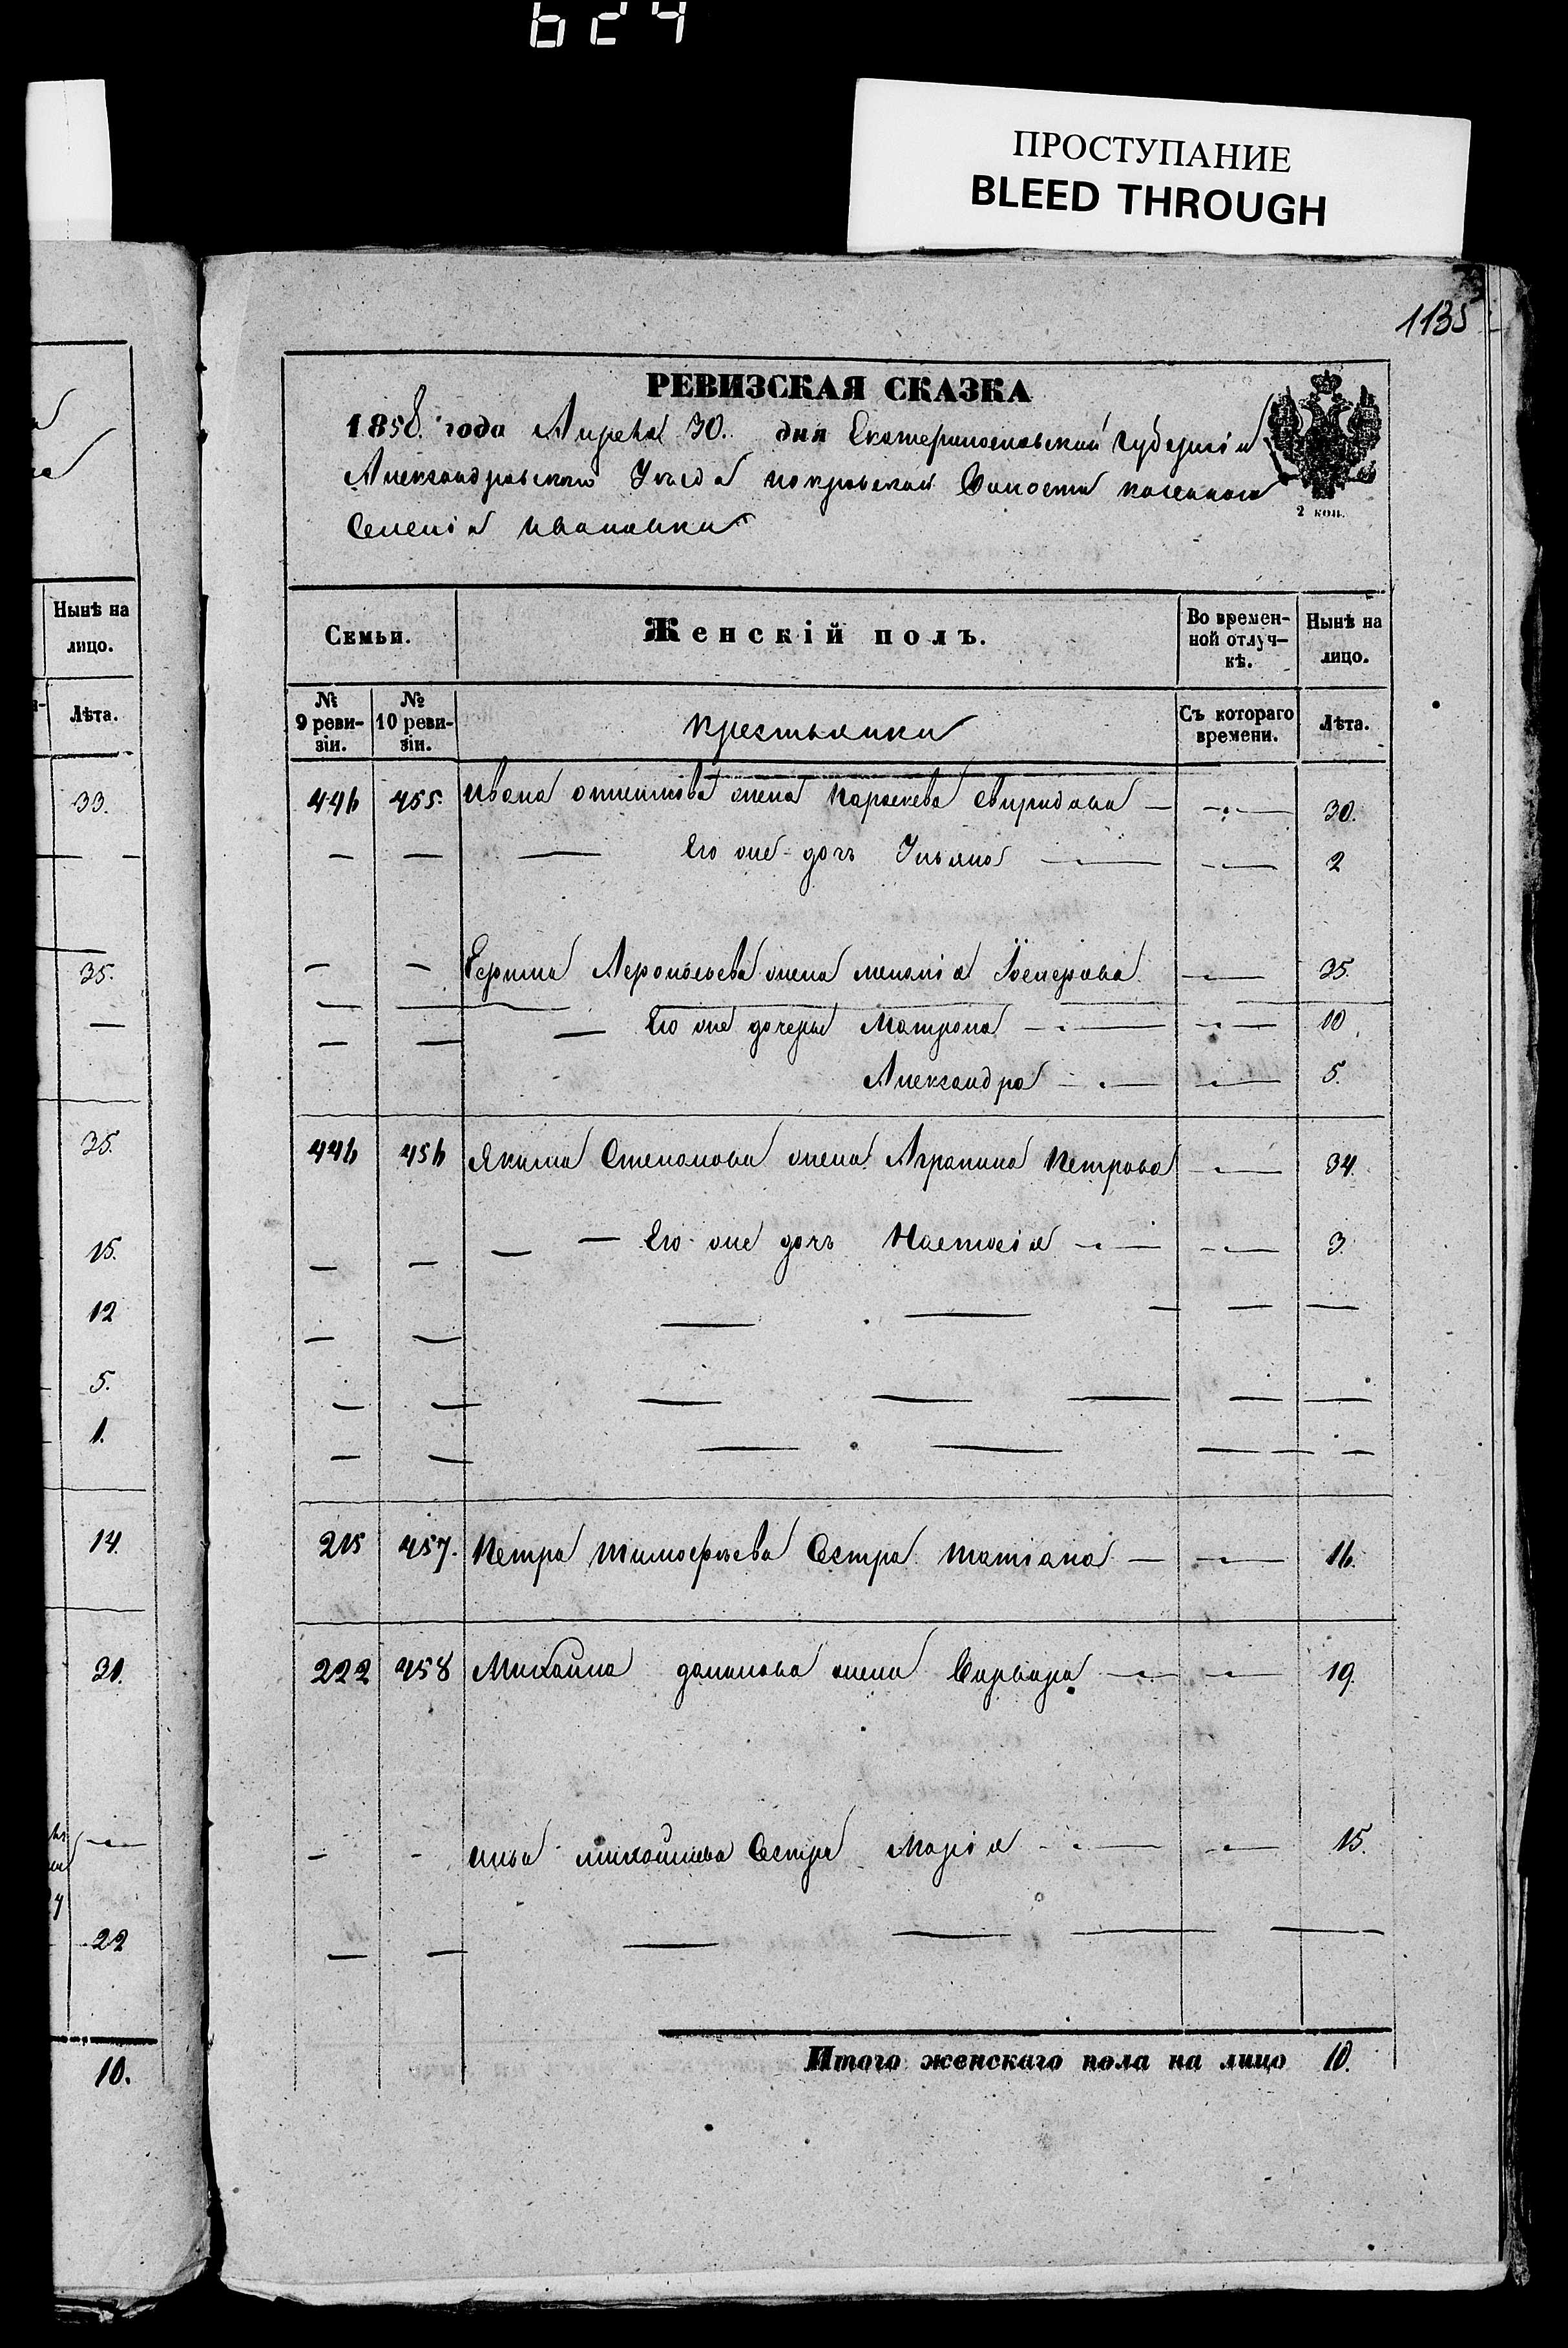 624
ПРОСТУПАНИЕ
BLEED THROUGH
1135
РЕВИЗСКАЯ СКАЗКА
1858. года Апреля 30. дня Екатеринославской Губерніи
Александровскаго Уѣзда Покровской Волости казеннаго
Селенія Ивановки
2 коп.
Семьи. Женскій полъ. Во времен-ной отлуч-кѣ. Нынѣ на лицо.
№ 9 реви-зіи. № 10 реви-зіи. Крестьянки Съ котораго времени. Лѣта.
446 455. Ивана жена Свиридова 30.
Его же дочь Ульяна 2
жена 35.
Его же дочери Матрона 10
Александра 5.
446 456 Якима Степанова жена Аграпина Петрова 34.
Его же дочь Настасія 3.
215 457. Петра Тимофѣева Сестра Татіана 16.
222 458 Михайла жена Варвара 19.
Илья Михайлова Сестра Марія 15.
Итого женскаго пола на лицо 10.
Нынѣ на
лицо.
Лѣта.
33.
35.
35.
15.
12
5.
1.
14.
31.
22
10.